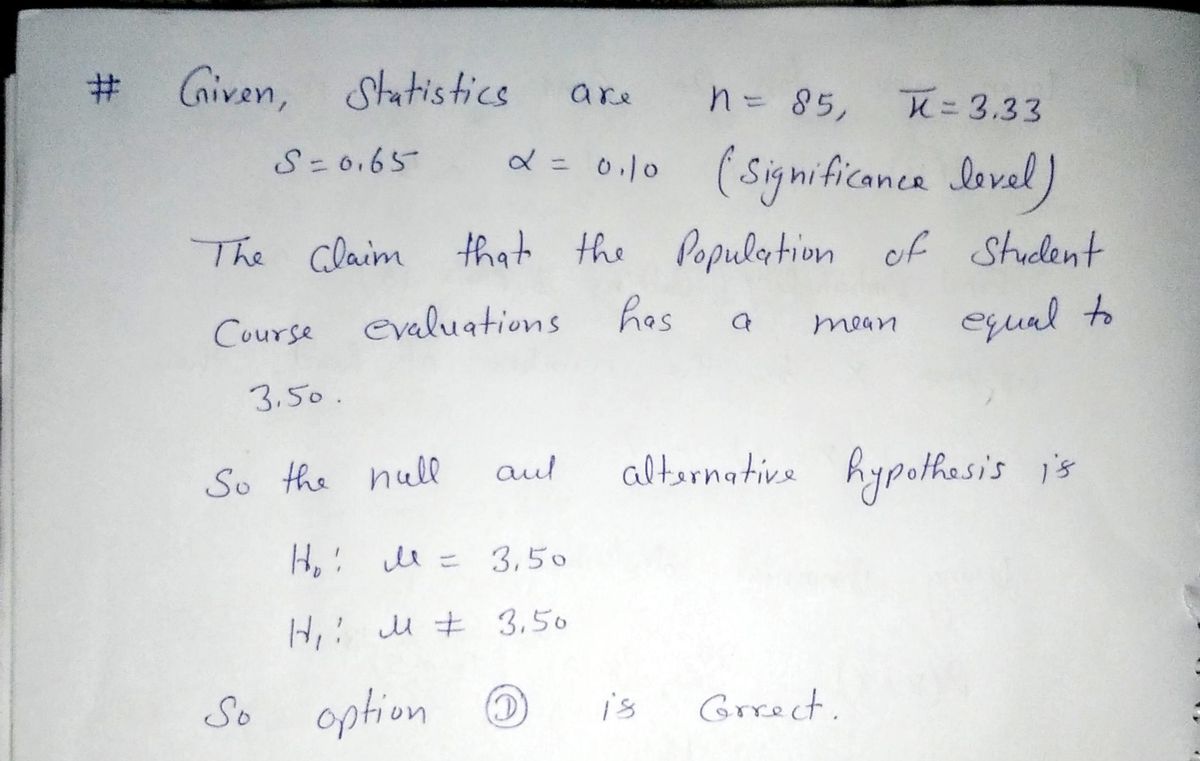 # Given, Statistics are n = 85, x̄ = 3.33
S = 0.65 α = 0.10 (Significance level)
The Claim that the Population of Student
Course evaluations has a mean equal to
3.50.
So the null and alternative hypothesis is
H₀: μ = 3.50
H₁: μ ≠ 3.50
So option Ⓓ is Correct.